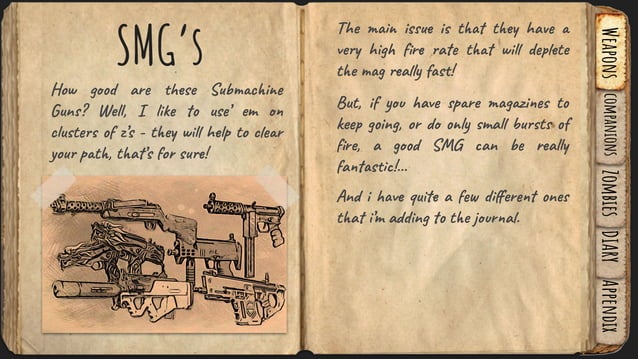 SMG's
How good are these Submachine
Guns? Well, I like to use' em on
clusters of z's - they will help to clear
your path, that's for sure!
The main issue is that they have a
very high fire rate that will deplete
the mag really fast!
But, if you have spare magazines to
keep going, or do only small bursts of
fire, a good SMG can be really
fantastic!...
And i have quite a few different ones
that i'm adding to the journal.
WEAPONS
COMPANIONS
ZOMBIES
DIARY
APPENDIX